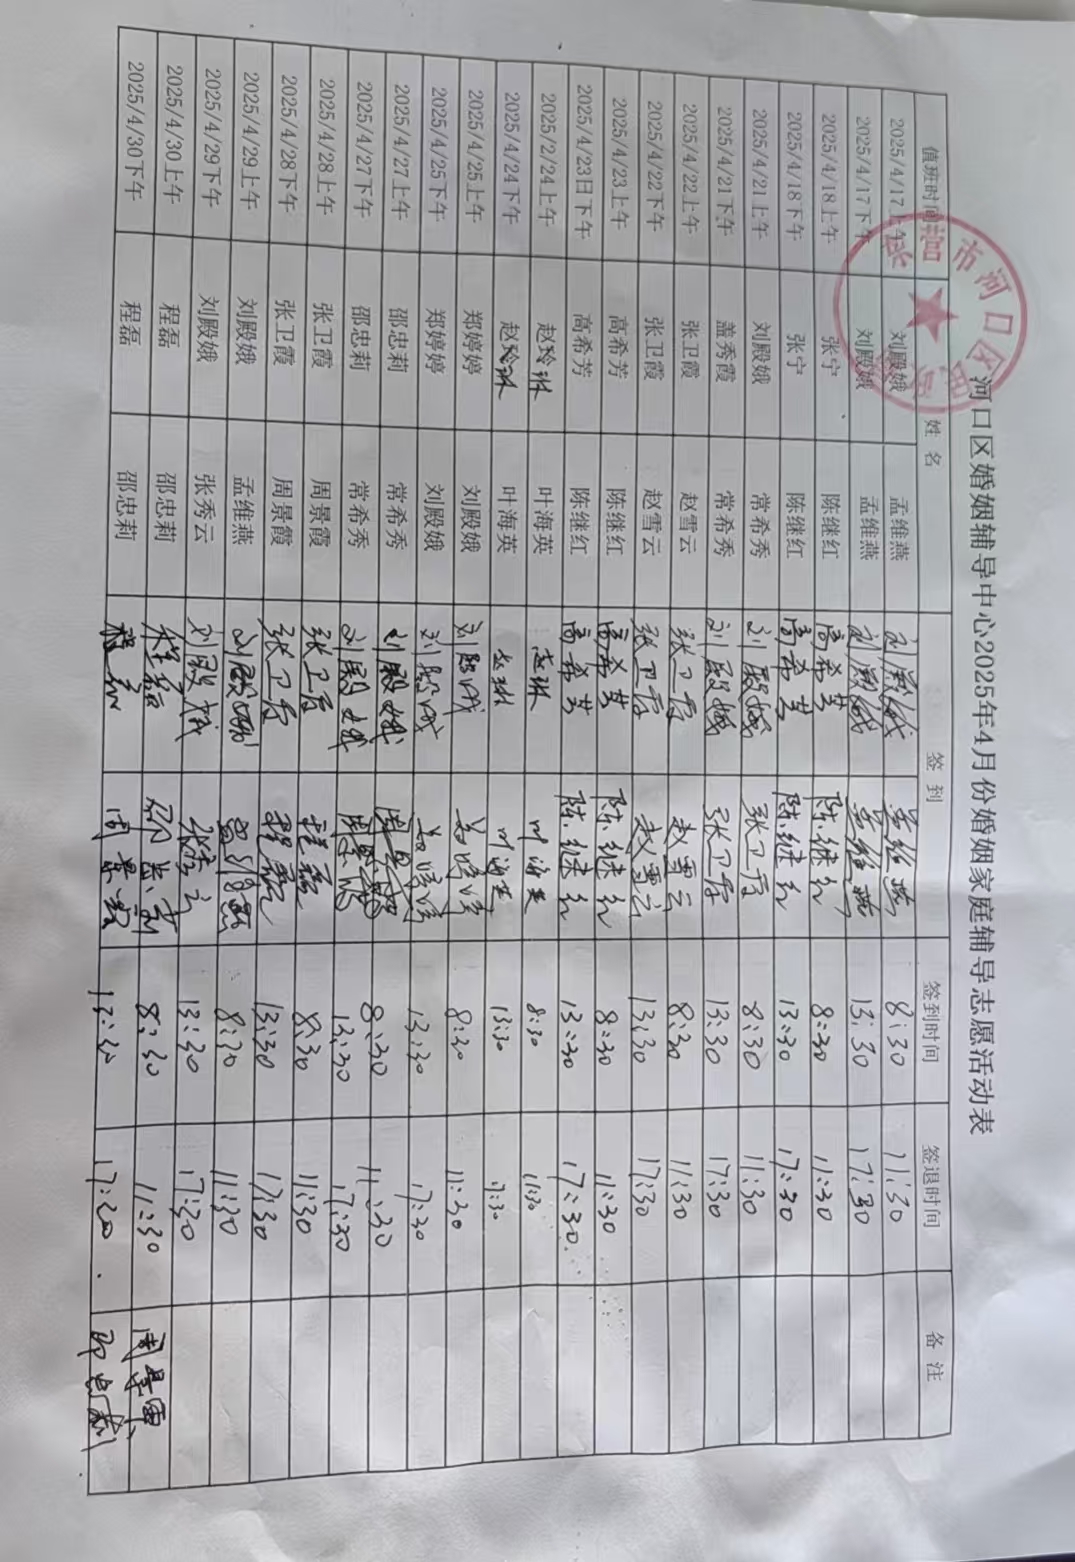 河口区婚姻辅导中心2025年4月份婚姻家庭辅导志愿活动表
值班时间 姓名 签到 签到时间 签退时间 备注
2025/4/17上午 刘殿娥 孟维燕 刘殿娥 孟维燕 8:30 11:30
2025/4/17下午 刘殿娥 孟维燕 刘殿娥 孟维燕 13:30 17:30
2025/4/18上午 张宁 陈继红 高希芳 陈继红 8:30 11:30
2025/4/18下午 张宁 陈继红 高希芳 陈继红 13:30 17:30
2025/4/21上午 刘殿娥 常希秀 刘殿娥 张卫霞 8:30 11:30
2025/4/21下午 盖秀霞 常希秀 刘殿娥 张卫霞 13:30 17:30
2025/4/22上午 张卫霞 赵雪云 张卫霞 赵雪云 8:30 11:30
2025/4/22下午 张卫霞 赵雪云 张卫霞 赵雪云 13:30 17:30
2025/4/23上午 高希芳 陈继红 高希芳 陈继红 8:30 11:30
2025/4/23日下午 高希芳 陈继红 高希芳 陈继红 13:30 17:30
2025/2/24上午 赵玲琳 叶海英 叶海英 8:30 11:30
2025/4/24下午 赵玲琳 叶海英 叶海英 13:30 17:30
2025/4/25上午 郑婷婷 刘殿娥 刘殿娥 8:30 11:30
2025/4/25下午 郑婷婷 刘殿娥 刘殿娥 13:30 17:30
2025/4/27上午 邵忠莉 常希秀 刘殿娥 8:30 11:30
2025/4/27下午 邵忠莉 常希秀 刘殿娥 13:30 17:30
2025/4/28上午 张卫霞 周景霞 张卫霞 程磊 8:30 11:30
2025/4/28下午 张卫霞 周景霞 张卫霞 程磊 13:30 17:30
2025/4/29上午 刘殿娥 孟维燕 刘殿娥 8:30 11:30
2025/4/29下午 刘殿娥 张秀云 刘殿娥 张秀云 13:30 17:30
2025/4/30上午 程磊 邵忠莉 程磊 邵忠莉 8:30 11:30 周景霞
2025/4/30下午 程磊 邵忠莉 程磊 周景霞 13:30 17:30 邵忠莉